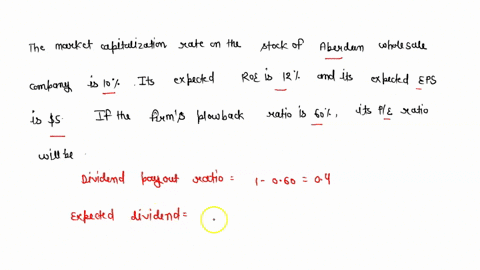 The market capitalization rate on the stock of Aberdeen wholesale
company is 10%. Its expected ROE is 12% and its expected EPS
is $5. If the firm's plowback ratio is 60%, its P/E ratio
will be.
Dividend payout ratio = 1-0.60 = 0.4
Expected dividend =